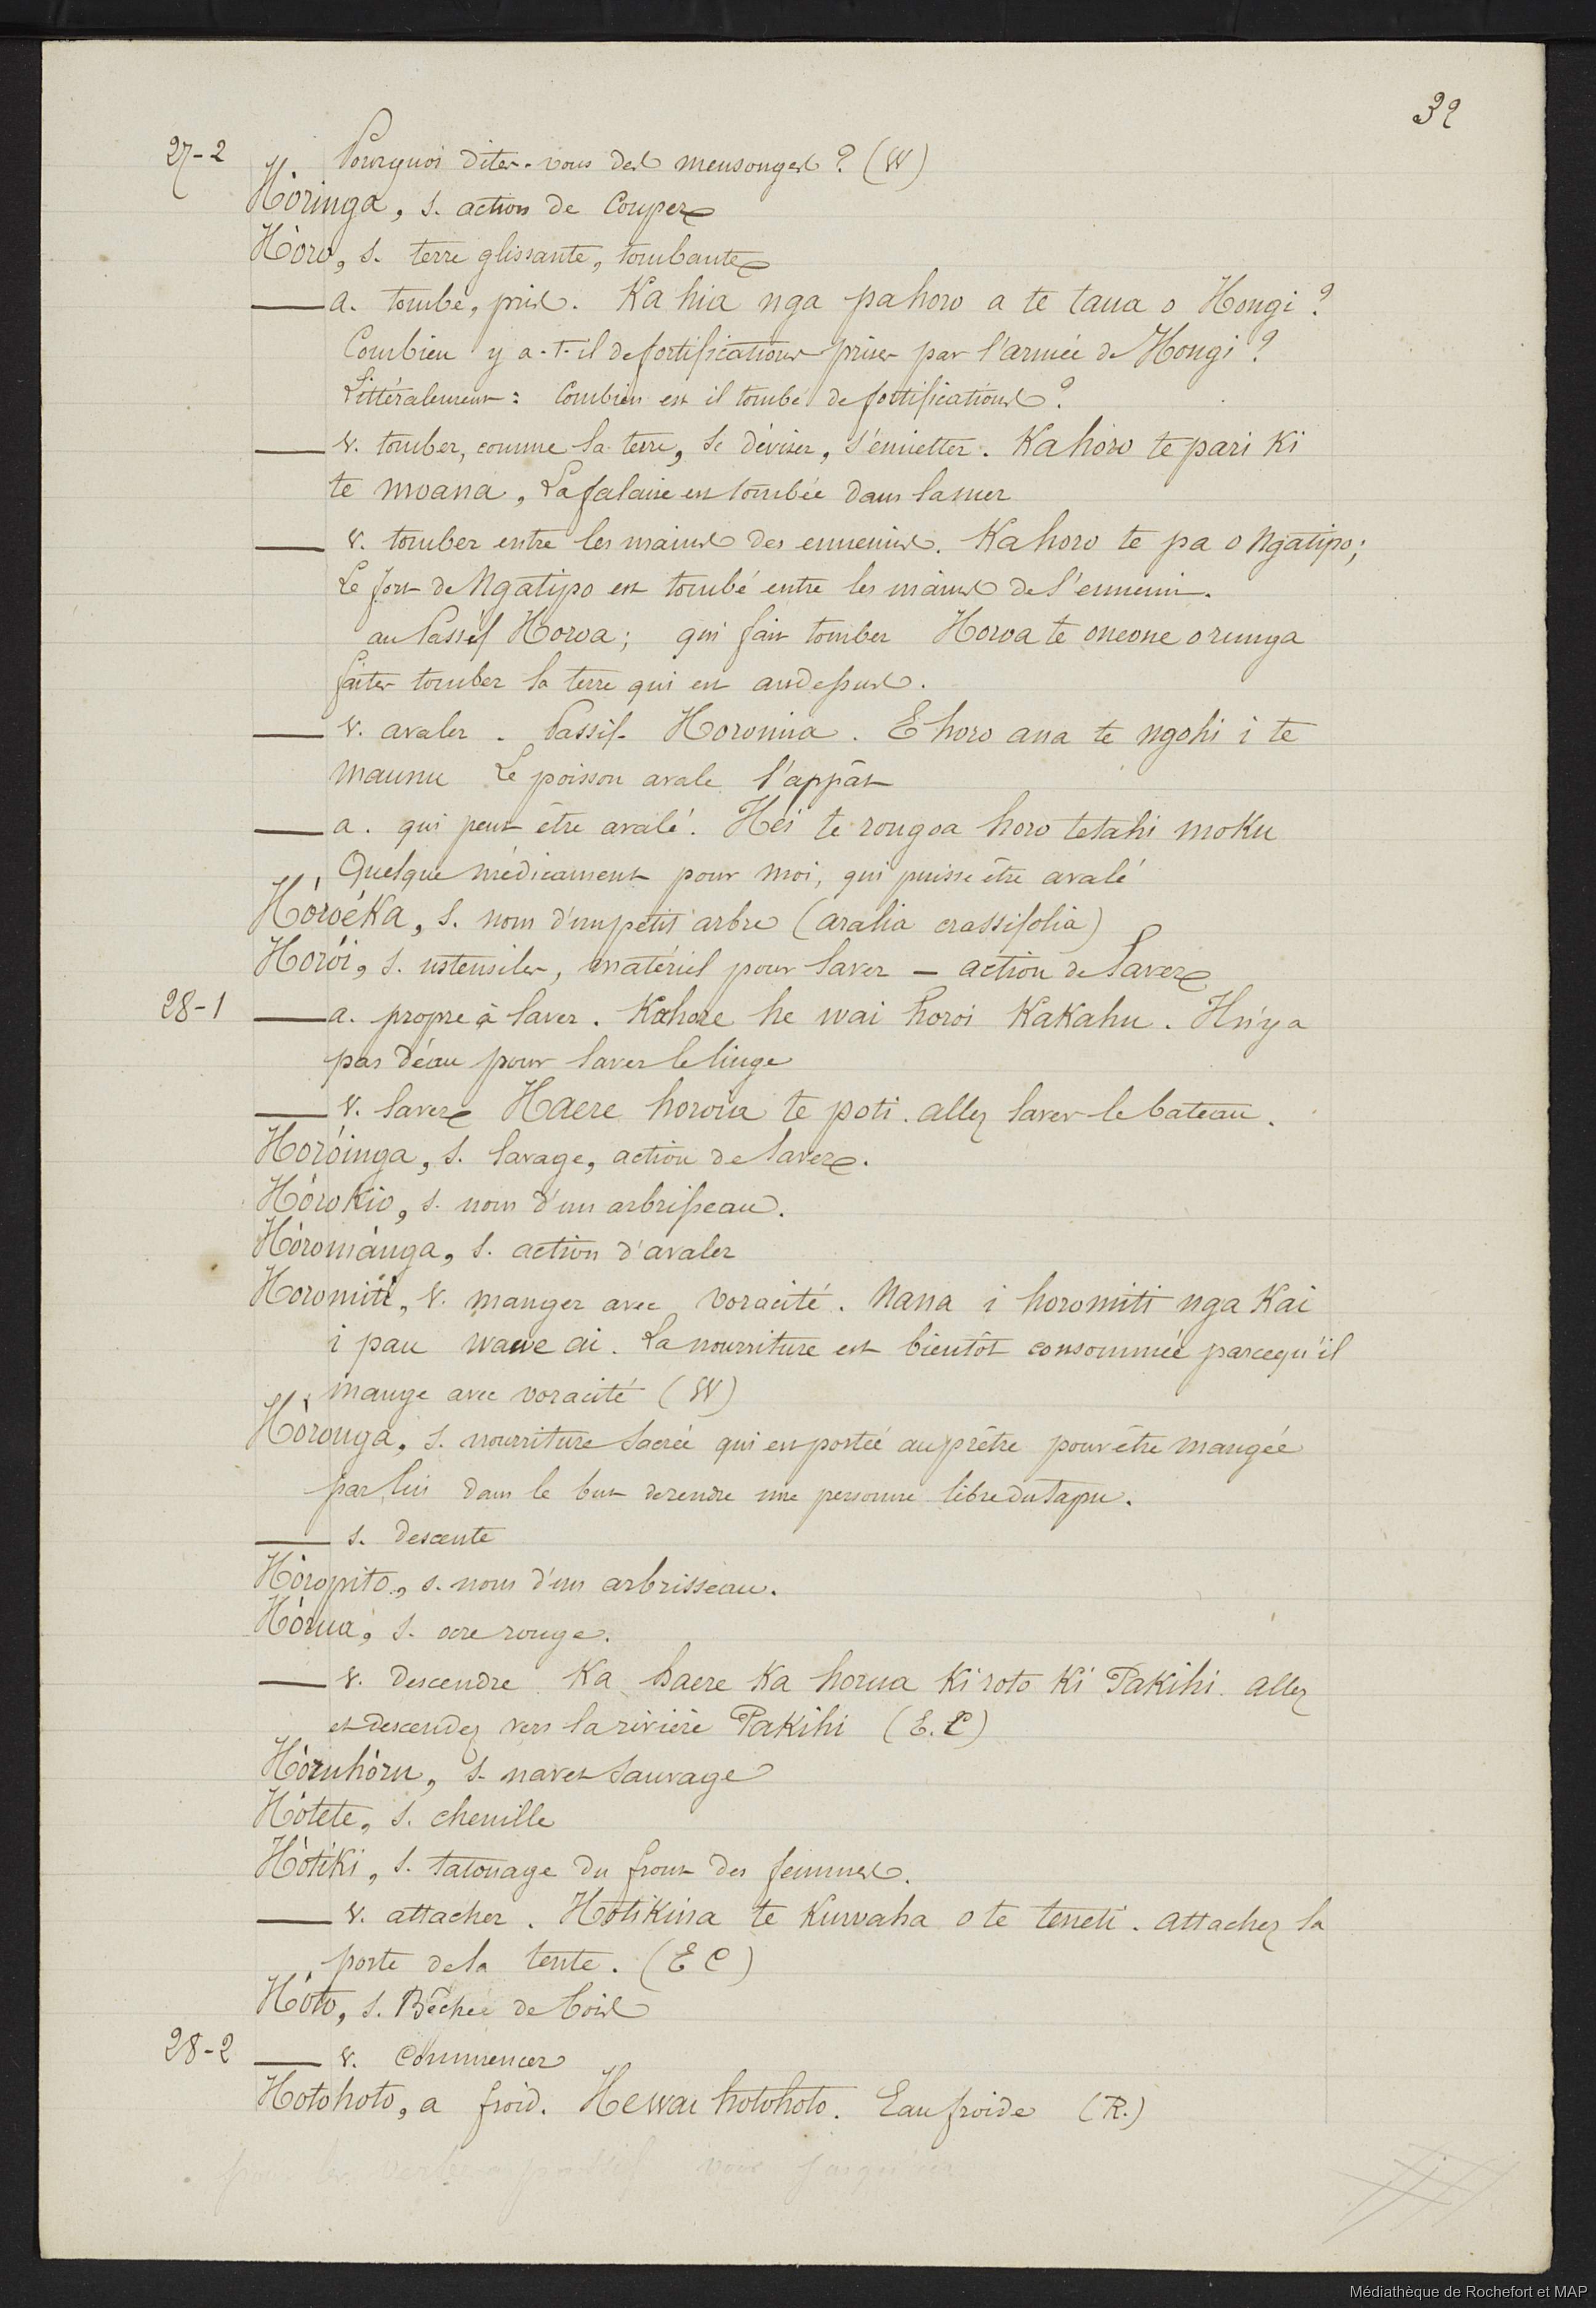 32
27-2 Pourquoi dites-vous des mensonges ? (W)
Hòringa, s. action de Couper
Hòro, s. terre glissante, tombante
— a. tombé, pris. Ka hia nga pahoro a te taua o Hongi ?
Combien y a-t-il de fortifications prises par l'armée de Hongi ?
Littéralement : Combien est il tombé de fortifications ?
— v. tomber, comme la terre, se déviser, s'émietter. Ka horo te pari Ki
te moana, La falaise est tombée dans la mer
— v. tomber entre les mains des ennemis. Ka horo te pa o Ngatipo;
Le fort de Ngatipo est tombé entre les mains de l'ennemi.
au Passif Horoa; qui fait tomber Horoa te oneone o runga
faites tomber la terre qui est audessus.
— v. avaler. Passif Horomia. E horo ana te ngohi i te
maunu Le poisson avale l'appât
— a. qui peut être avalé. Hei te rongoa horo tetahi moku
Quelque médicament pour moi, qui puisse être avalé
Hóroéka, s. nom d'un petit arbre (aralia crassifolia)
Horói, s. ustensiles, matériel pour laver — action de laver
28-1 — a. propre à laver. Kahore he wai horoi Kakahu. Il n'y a
pas d'eau pour laver le linge
— v. laver Haere horoia te poti. allez laver le bateau.
Horóinga, s. lavage, action de laver.
Hòrokio, s. nom d'un arbrisseau.
Hòrománga, s. action d'avaler
Horomiti, v. manger avec voracité. Nana i horomiti nga Kai
i pau wawe ai. La nourriture est bientôt consommée parcequ'il
mange avec voracité (W)
Hòronga, s. nourriture sacrée qui est portée au prêtre pour être mangée
par lui dans le but de rendre une personne libre du Tapu.
— s. descente
Hòropito, s. nom d'un arbrisseau.
Hòrua, s. ocre rouge.
— v. descendre Ka haere Ka horua Ki roto Ki Pakihi. allez
et descendez vers la rivière Pakihi (E.C)
Hòruhòru, s. navet sauvage
Hòtete, s. chenille
Hòtiki, s. tatouage du front des femmes.
— v. attacher. Hotikina te Kuwaha o te teneti. attachez la
porte de la tente. (E C)
Hòto, s. Bêche de bois
28-2 — v. Commencer
Hotohoto, a froid. He wai hotohoto. Eau froide (R.)
Médiathèque de Rochefort et MAP